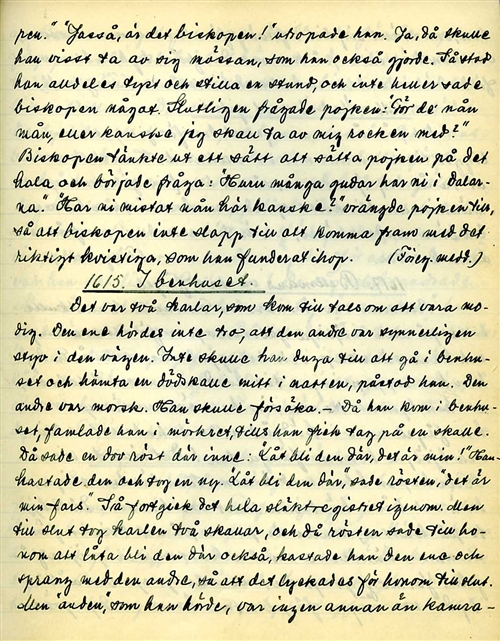 pen." "Jasså, är det biskopen!" utropade han. Ja, då skulle
han visst ta av sig mössan, som han också gjorde. Så stod
han alldeles tyst och stilla en stund, och inte heller sade
biskopen något. Slutligen frågade pojken: "Gör de' nån
mån, eller kanske jag skall ta av mig rocken med?"
Biskopen tänkte ut ett sätt att sätta pojken på det
hala och började fråga: "Huru många gudar har ni i Dalar-
na." "Har ni mistat nån här kanske?" vrängde pojken till,
så att biskopen inte slapp till att komma fram med det
riktigt kvistiga, som han funderat ihop. (Föreg. medd.)
1615. I benhuset.
Det var två karlar, som kom till tals om att vara mo-
dig. Den ene hördes inte tro, att den andre var synnerligen
styv i den vägen. Inte skulle han duga till att gå i benhu-
set och hämta en dödskalle mitt i natten, påstod han. Den
andre var morsk. Han skulle försöka. – Då han kom i benhu-
set, famlade han i mörkret, tills han fick tag på en skalle.
Då sade en dov röst där inne: "Låt bli den där, det är min!" Han
kastade den och tog en ny. "Låt bli den där," sade rösten, "det är
min fars." Så fortgick det hela släktregistret igenom. Men
till slut tog karlen två skallar, och då rösten sade till ho-
nom att låta bli den där också, kastade han den ene och
sprang med den andre, så att det lyckades för honom till slut.
Men "anden," som han hörde, var ingen annan än kamra-